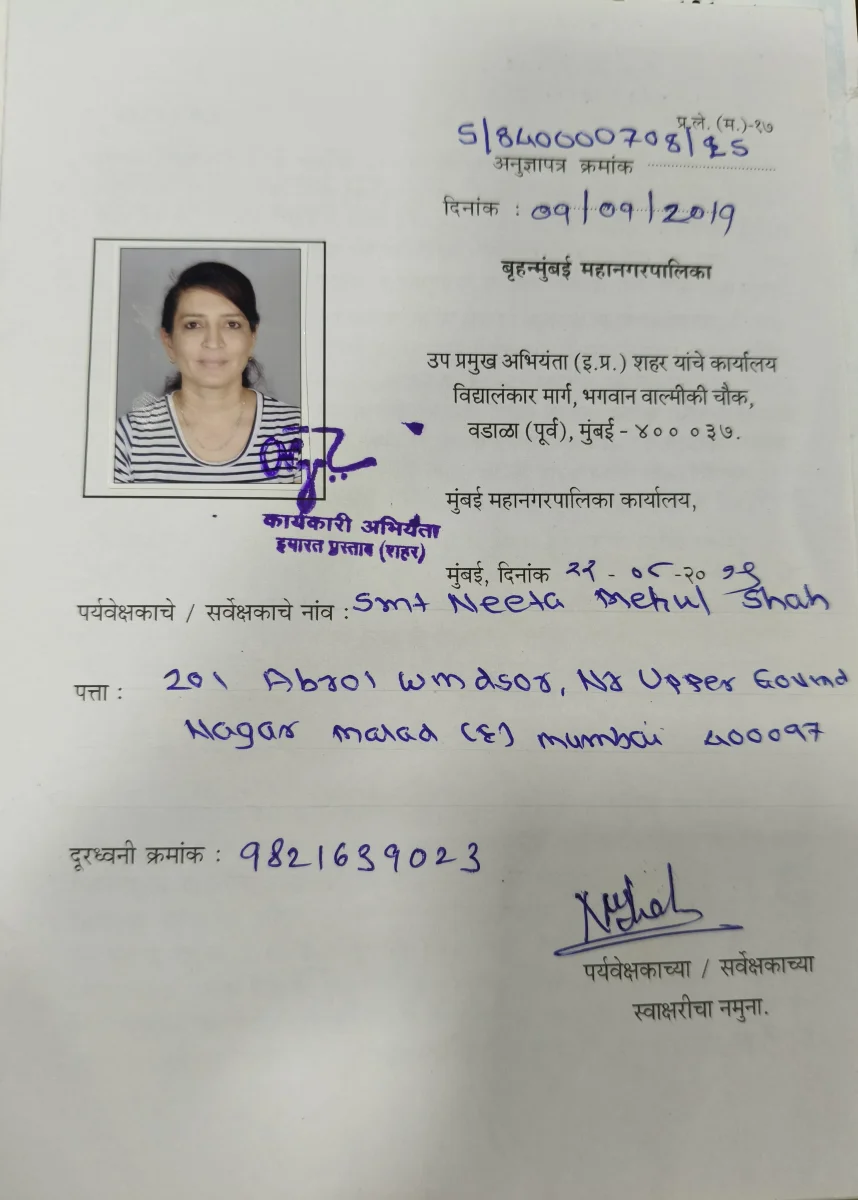 प्र.ले. (म.)-१७
S/840000708/SS
अनुज्ञापत्र क्रमांक
दिनांक : 09/09/2019
बृहन्मुंबई महानगरपालिका
उप प्रमुख अभियंता (इ.प्र.) शहर यांचे कार्यालय
विद्यालंकार मार्ग, भगवान वाल्मीकी चौक,
वडाळा (पूर्व), मुंबई - ४०० ०३७.
मुंबई महानगरपालिका कार्यालय,
कार्यकारी अभियंता
इमारत प्रस्ताव (शहर)
मुंबई, दिनांक - ०८ -२० १९
पर्यवेक्षकाचे / सर्वेक्षकाचे नांव : Smt Neeta Mehul Shah
पत्ता : 201 Abrol Windsor, Nr Upper Govind
Nagar Malad (E) Mumbai 400097
दूरध्वनी क्रमांक : 9821639023
पर्यवेक्षकाच्या / सर्वेक्षकाच्या
स्वाक्षरीचा नमुना.